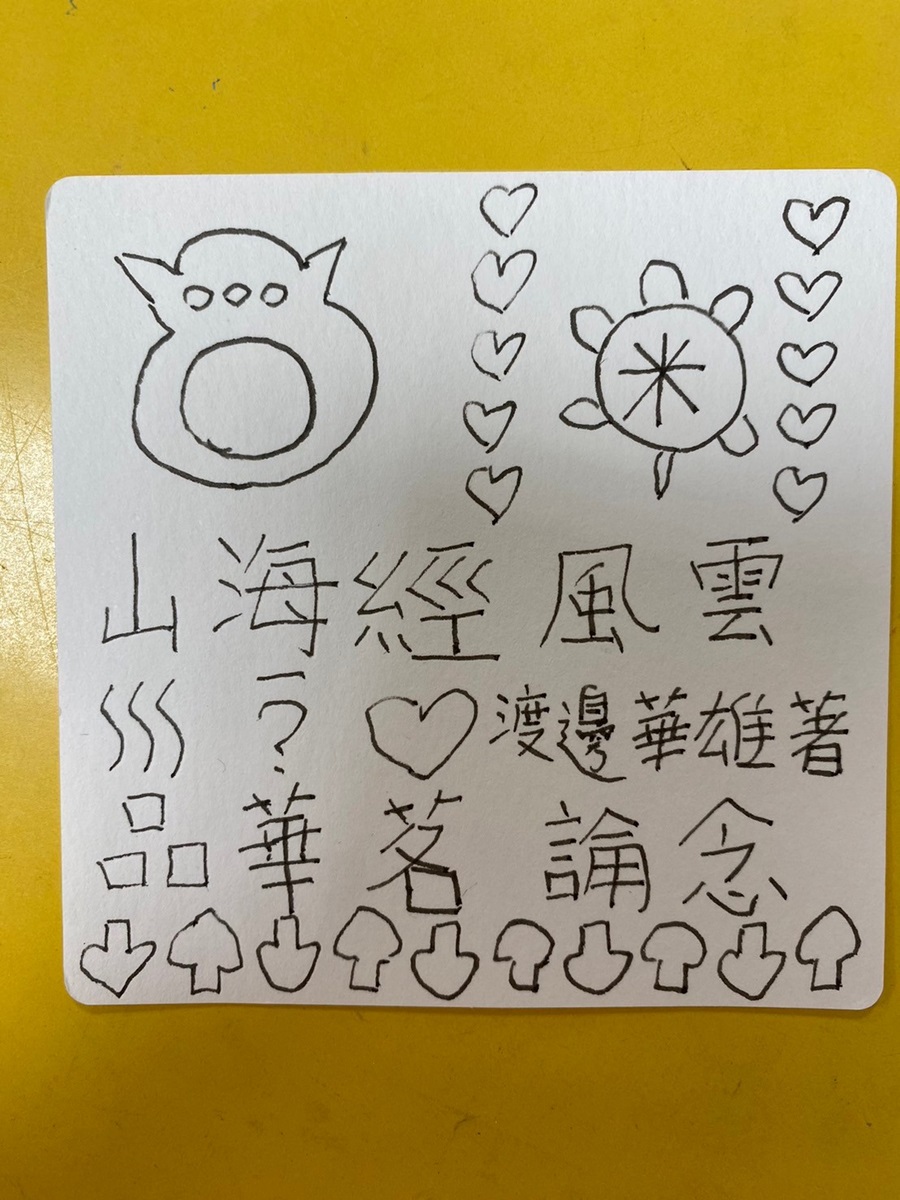 山海經風雲
? 渡邊華雄著
品華茗論念